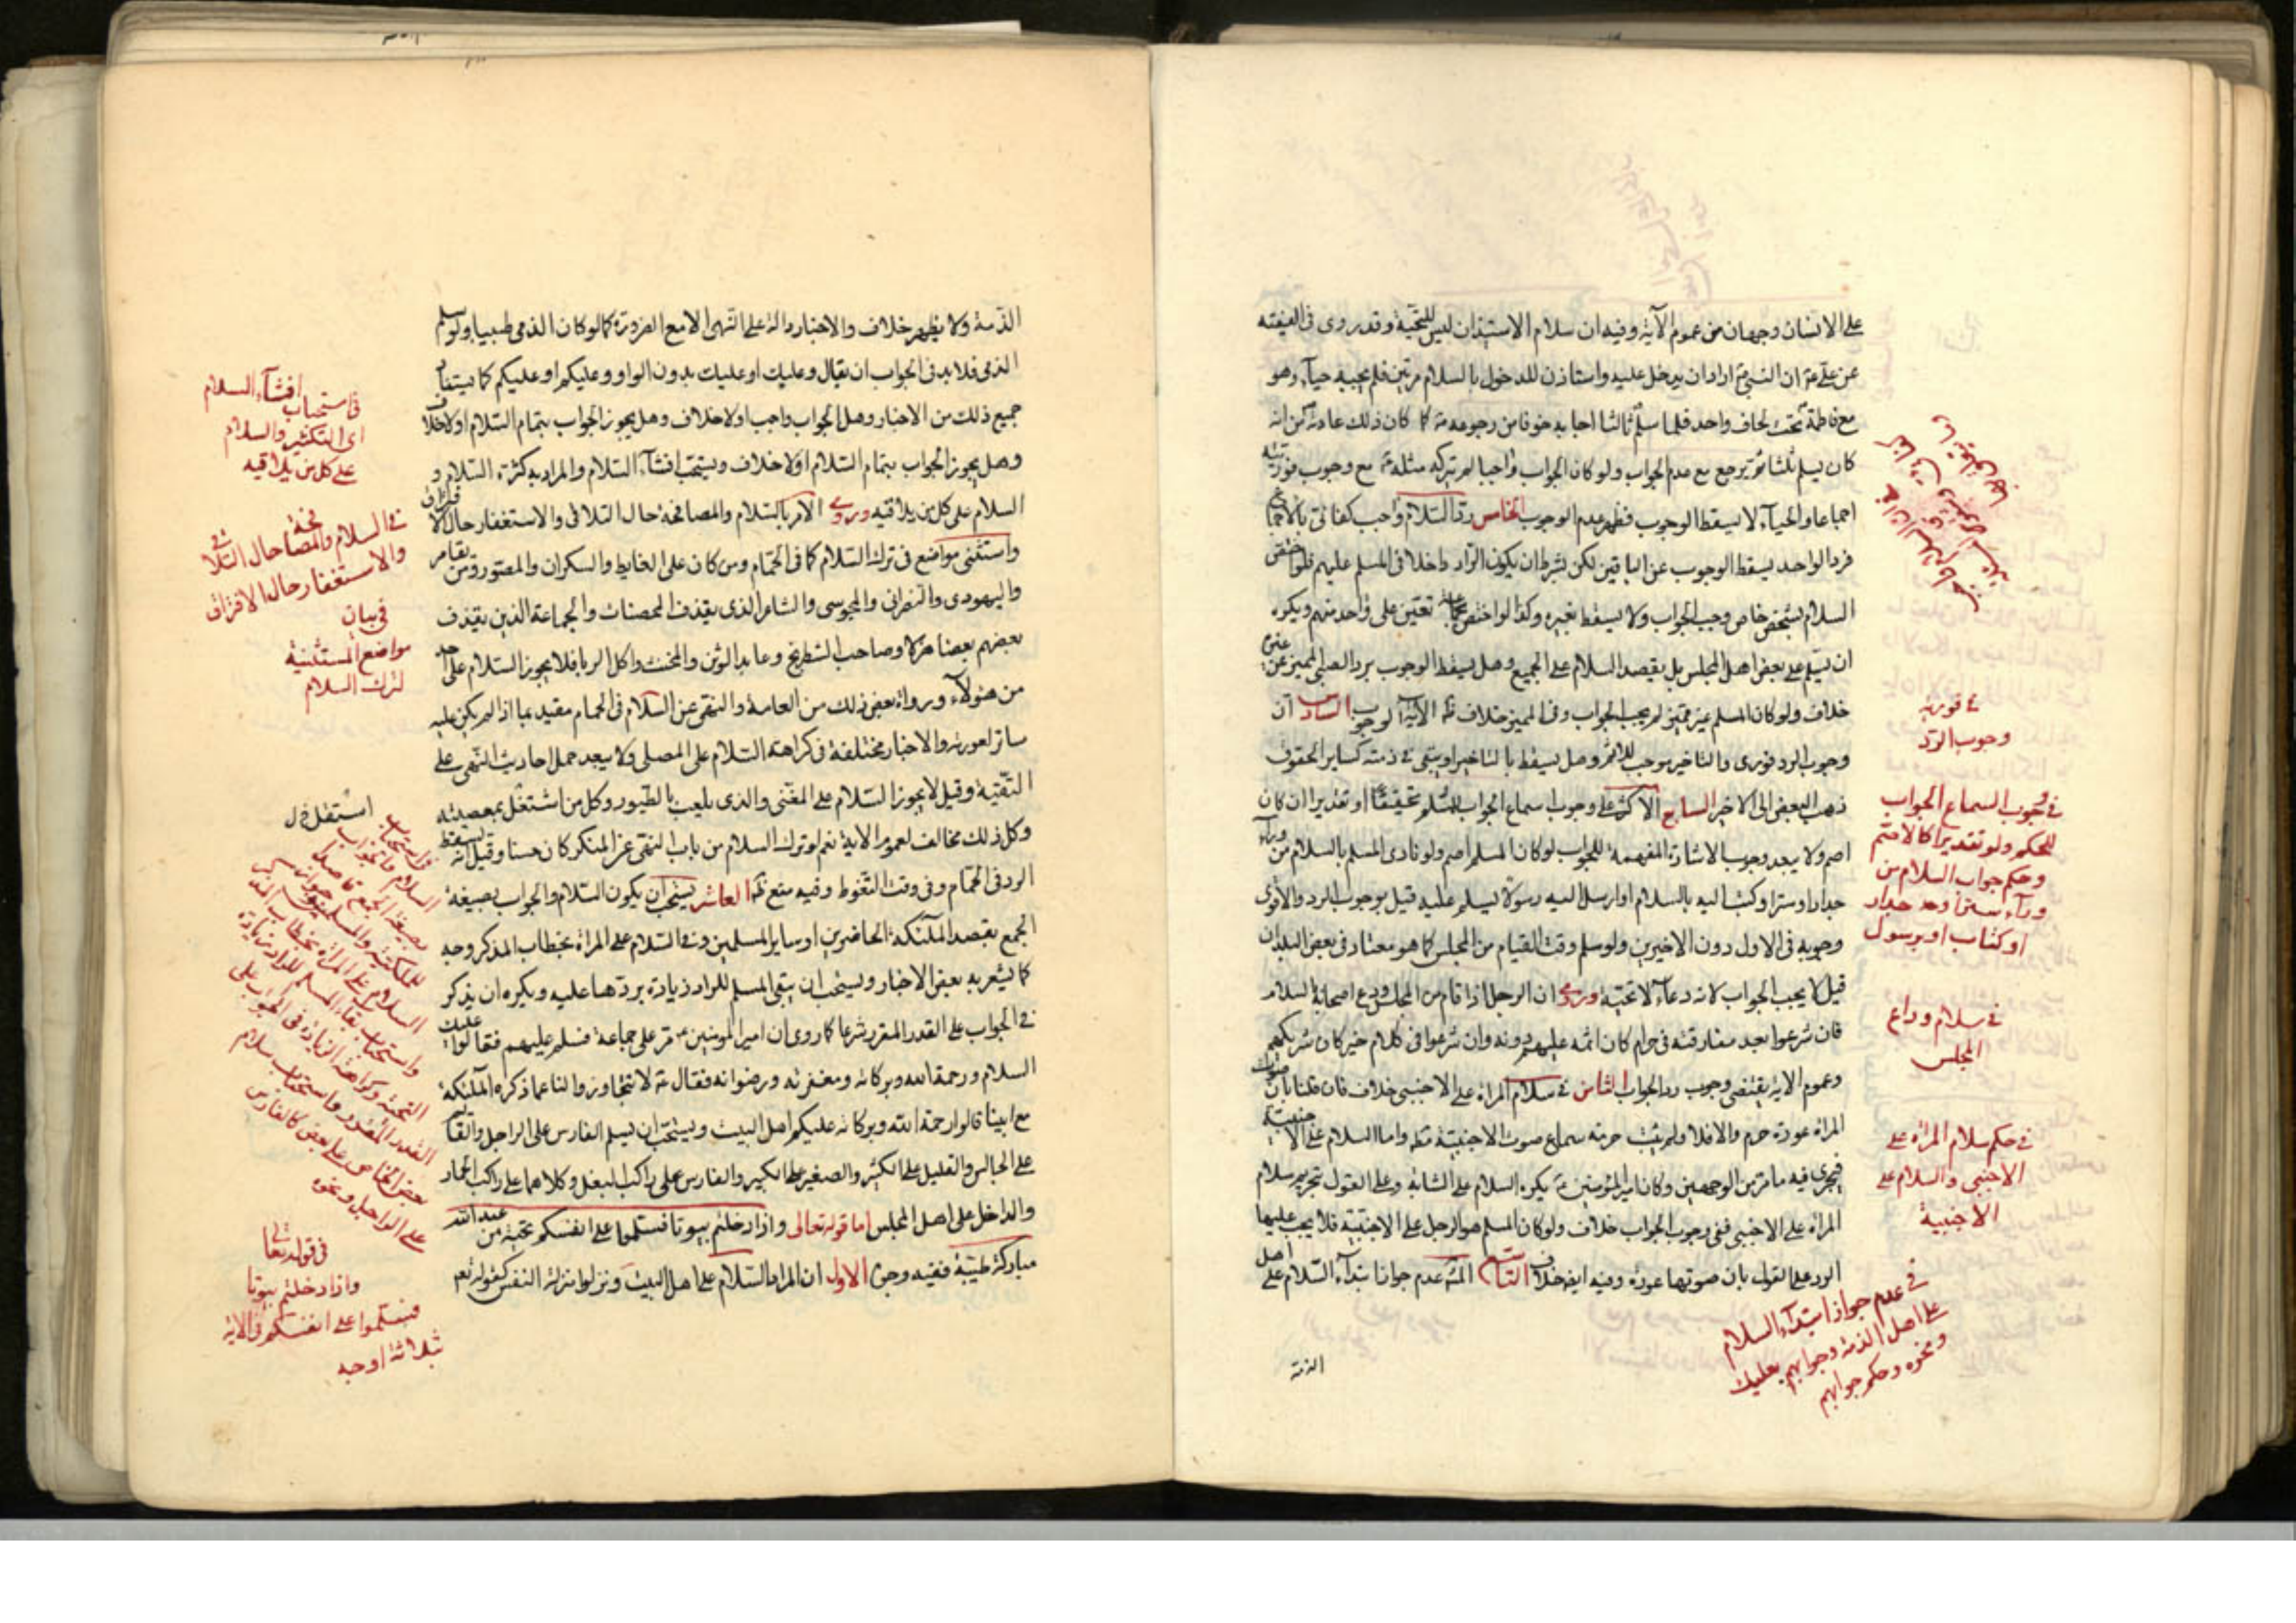 على الانسان وجهان من عموم الآية وفيه ان سلام الاستيذان ليس للتحية وقد روى فى الفيقه
عن على ع ان النبى ص اراد ان يدخل عليه واستاذن للدخول بالسلام مرتين فلم يجبه حياء وهو
مع فاطمة تحت لحاف واحد فلما سلم ثالثا اجابه خوفا من رجوعه ص كما كان ذلك عادته من انه
كان يسلم ثلثا ثم يرجع مع عدم الجواب ولو كان الجواب واجبا لم يتركه مثله ع مع وجوب فوريته
اجماعا والحياء لا يسقط الوجوب فظهر عدم الوجوب الخامس رد السلام واجب كفائى بالاجماع
فرد الواحد يسقط الوجوب عن الباقين لكن بشرط ان يكون الراد داخلا فى المسلم عليهم فلو اختص
السلام بشخص خاص وجب الجواب ولا يسقط بغيره وكذا لو اختص بجماعة تعين على واحد منهم ويكره
ان يسلم على بعض اهل المجلس بل يقصد السلام على الجميع وهل يسقط الوجوب برد الصبى المميز عن غيره
خلاف ولو كان المسلم غير مميز لم يجب الجواب وفى المميز خلاف الآية الوجوب السادس ان
وجوب الرد فورى والتاخير موجب للاثم وهل يسقط بالتاخير او يبقى فى ذمته كساير الحقوق
ذهب البعض الى الاخير السابع الاكثر على وجوب اسماع الجواب للمسلم تحقيقا او تقديرا ان كان
اصم ولا يبعد وجوب الاشارة المفهمة للجواب لو كان المسلم اصم ولو نادى المسلم بالسلام من وراء
جدار او ستر او كتب اليه بالسلام او ارسل اليه رسولا ليسلم عليه قيل بوجوب الرد والاقوى
وجوبه فى الاول دون الاخيرين ولو سلم وقت القيام من المجلس كما هو معتاد فى بعض البلدان
قيل لا يجب الجواب لانه دعاء لا تحية وروى ان الرجل اذا قام من المجلس ودع اصحابه بالسلام
فان شرعوا بعد مفارقته فى حرام كان اثمه عليهم دونه وان شرعوا فى كلام خير كان شريكهم
وعموم الآية يقتضى وجوب رد الجواب الثامن فى سلام المراة على الاجنبى خلاف فان قلنا بان صوت
المراة عورة حرم والا فلا ولم يثبت حرمة سماع صوت الاجنبية واما السلام على الاجنبية
فيجرى فيه ما مر من الوجهين وكان امير المؤمنين ع يكره السلام على الشابة وعلى القول بتحريم سلام
المراة على الاجنبى ففى وجوب الجواب خلاف ولو كان المسلم هو الرجل على الاجنبية فلا يجب عليها
الرد على القول بان صوتها عورة وفيه ايضا خلاف التاسع عدم جواز ابتداء السلام على اهل
الذمة
فى فورية
وجوب الرد
فى وجوب السماع الجواب
للحكم ولو تقديرا كالاصم
وحكم جواب السلام من
وراء ستر او حد جدار
او كتاب او برسول
فى سلام وداع
المجلس
فى حكم سلام المراة على
الاجنبى والسلام على
الاجنبية
فى عدم جواز ابتداء السلام
على اهل الذمة وجوابهم بعليك
ونحوه وحكم جوابهم
الذمة ولا يظهر خلاف والاخبار دالة على النهى الا مع الضرورة كما لو كان الذمى طبيبا ولو سلم
الذمى فلا بد فى الجواب ان يقال وعليك او عليك بدون الواو وعليكم او عليكم كما يستفاد
جميع ذلك من الاخبار وهل الجواب واجب او لا خلاف وهل يجوز الجواب بتمام السلام او لا خلاف
وهل يجوز الجواب بتمام السلام او لا خلاف ويستحب افشاء السلام والمراد به كثرة السلام و
السلام على كل من يلاقيه وروى الامر بالسلام والمصافحة حال التلاقى والاستغفار حال الافتراق
واستثنى مواضع فى ترك السلام كما فى الحمام ومن كان على الغايط والسكران والمصور ومن يقامر
واليهودى والنصرانى والمجوسى والشاعر الذى يقذف المحصنات والجماعة الذين يقذف
بعضهم بعضا هزلا وصاحب الشطرنج وعابد الوثن والمخنث واكل الربا فلا يجوز السلام على احد
من هؤلاء ورواة بعض ذلك من العامة والنهى عن السلام فى الحمام مقيد بما اذا لم يكن عليه
ساتر لعورته والاخبار مختلفة فى كراهة السلام على المصلى ولا يبعد حمل احاديث النهى على
التقية وقيل لا يجوز السلام على المغنى والذى يلعب بالطيور وكل من اشتغل بمعصية
وكل ذلك مخالف لعموم الآية نعم لو ترك السلام من باب النهى عن المنكر كان حسنا وقيل انه يسقط
الرد فى الحمام وفى وقت التغوط وفيه منع العاشر يستحب ان يكون السلام والجواب بصيغة
الجمع بقصد الملائكة الحاضرين او ساير المسلمين وفى السلام على المراة بخطاب المذكر وجه
كما يشعر به بعض الاخبار ويستحب ان يبقى المسلم للراد زيادة يردها عليه ويكره ان يذكر
فى الجواب على القدر المقرر شرعا كما روى ان امير المؤمنين ع مر على جماعة فسلم عليهم فقالوا عليك
السلام ورحمة الله وبركاته ومغفرته ورضوانه فقال ع لا تتجاوزوا لنا عما ذكره الملئكة
مع ابينا قالوا رحمة الله وبركاته عليكم اهل البيت ويستحب ان يسلم الفارس على الراجل والقائم
على الجالس والقليل على الكثير والصغير على الكبير والفارس على راكب البغل وكلاهما على راكب الحمار
والداخل على اهل المجلس اما قوله تعالى واذا دخلتم بيوتا فسلموا على انفسكم تحية من عند الله
مباركة طيبة ففيه وجوه الاول ان المراد السلام على اهل البيت ونزلوا منزلة النفس كقوله تعم
فى استحباب افشاء السلام
اى التكثير والسلام
على كل من يلاقيه
فى السلام والمصافحة حال التلاقى
والاستغفار حال الافتراق
فى بيان
مواضع المستثنية
لترك السلام
السلام على المراة بخطاب المذكر
واستحباب بقاء المسلم للراد من زيادة
التحية وكراهة الزيادة فى الجواب على
القدر المقرر واستحباب سلام
بعض الخاص على بعض كالفارس
على الراجل ونحوه
فى قوله تعالى
واذا دخلتم بيوتا
فسلموا على انفسكم فى الآية
ثلاثة اوجه